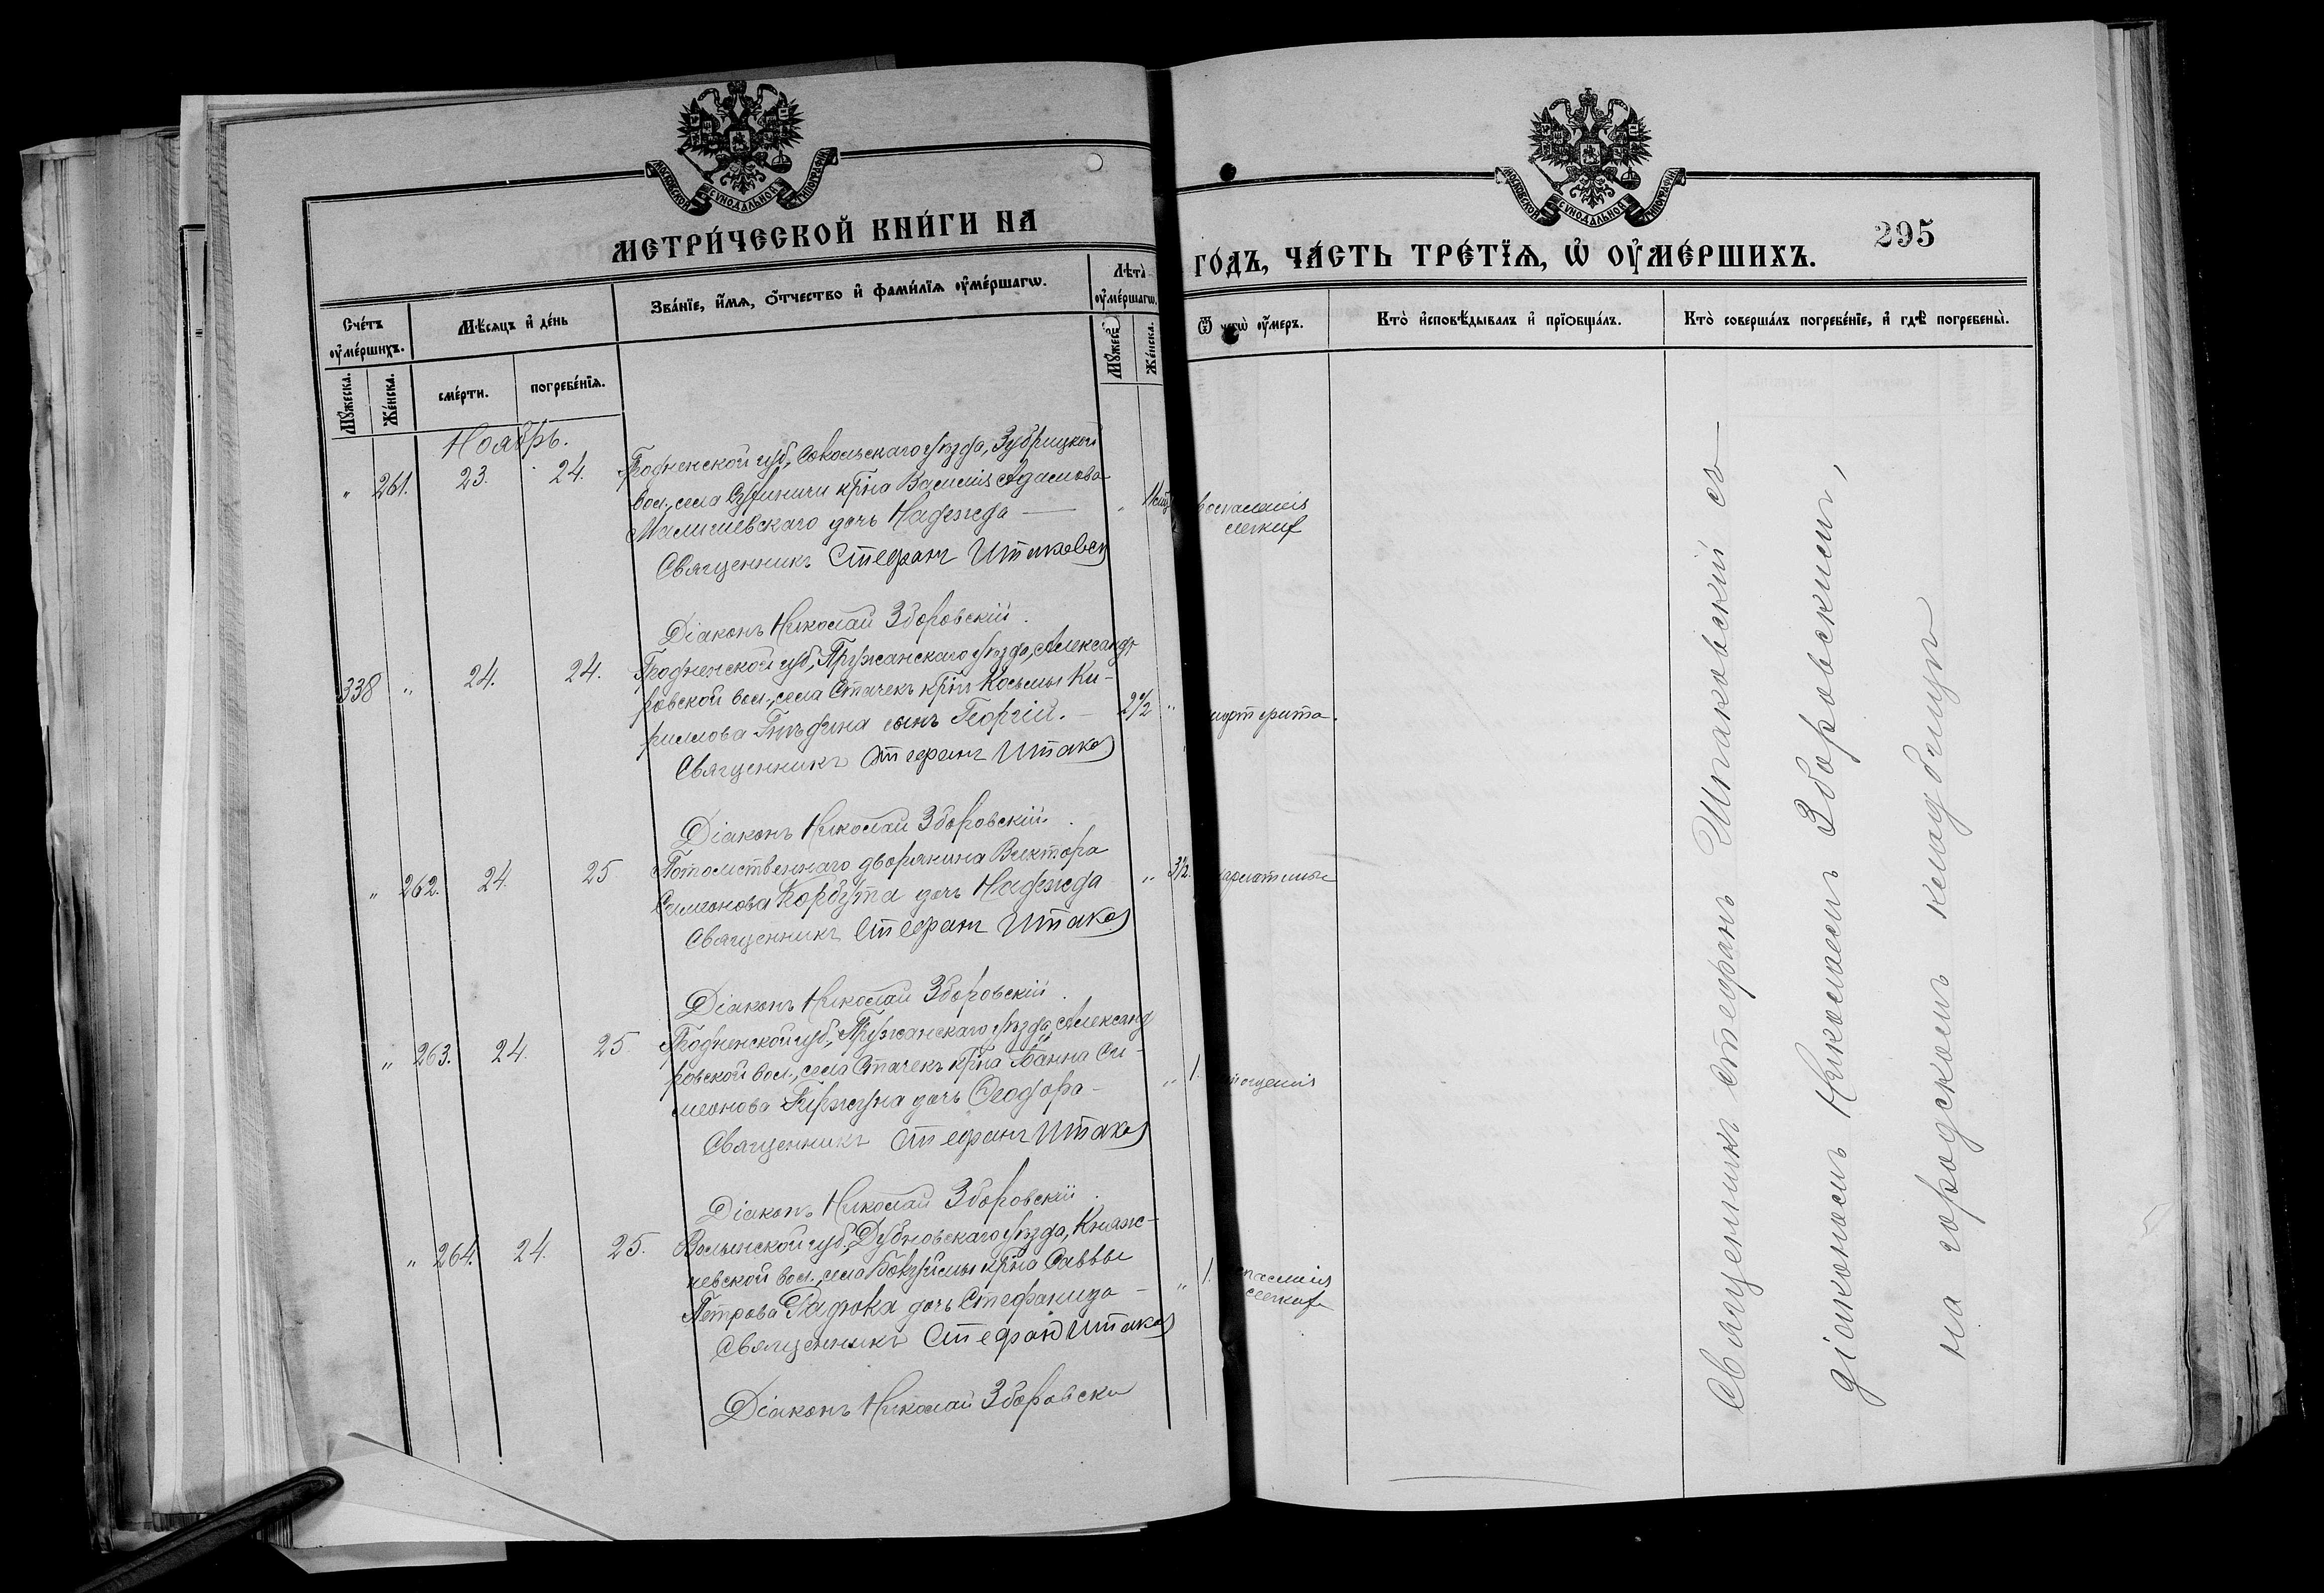 МОСКОВСКОЙ СѴНОДАЛЬНОЙ ТИПОГРАФІИ
МЕТРИ́ЧЕСКОЙ КНИ́ГИ НА
Сче́тъ ᲂу҆ме́ршихъ.
Мѣ́сяцъ и҆ де́нь
Зва́нїе, и҆́мѧ, ѻ҆́тчество и҆ фами́лїѧ ᲂу҆ме́ршагѡ.
Лѣта̀ ᲂу҆ме́ршагѡ.
Мꙋ́жеска.
Же́нска.
сме́рти.
погребе́нїѧ.
Мꙋ́жеска.
Же́нска.
Ноябрь.
" 261. 23. 24. Гродненской губ., Сокольскаго уѣзда, Зубрицкой
вол., села кр̃на Василія Адамова
Малишевскаго дочь Надежда — "
Священникъ Стефанъ
Діаконъ Николай Зборовскій.
338 " 24. 24. Гродненской губ., Пружанскаго уѣзда, Александ
ровской вол., села Стачекъ кр̃на Косьмы Ки-
риллова сынъ Георгій. — 2½ "
Священникъ Стефанъ Шпако
Діаконъ Николай Зборовскій.
" 262. 24. 25. Потомственнаго дворянина Виктора
Симеонова Корбута дочь Надежда " 3½.
Священникъ Стефанъ Шпако
Діаконъ Николай Зборовскій.
" 263. 24. 25. Гродненской губ., Пружанскаго уѣзда, Александ
ровской вол., села Стачекъ кр̃на Іоанна Си-
меонова дочь Ѳеодора — " 1.
Священникъ Стефанъ Шпако
Діаконъ Николай Зборовскій.
" 264. 24. 25. Волынской губ., Дубновскаго уѣзда, Княж-
невской вол., села кр̃на Саввы
Петрова Радюка дочь Стефанида — " 1.
Священникъ Стефанъ Шпако
Діаконъ Николай Зборовски
МОСКОВСКОЙ СѴНОДАЛЬНОЙ ТИПОГРАФІИ
295
ГО́ДЪ, ЧА́СТЬ ТРЕ́ТЇѦ, Ѡ҆ ОУ҆МЕ́РШИХЪ.
Ѿ чегѡ̀ ᲂу҆́меръ.
Кто̀ и҆сповѣ́дывалъ и҆ прїѻбща́лъ.
Кто̀ соверша́лъ погребе́нїе, и҆ гдѣ̀ погребены̀.
воспаленія
легких
Священникъ Стефанъ Шпаковскій съ
діакономъ Николаемъ Зборовскимъ,
на городскомъ кладбищѣ